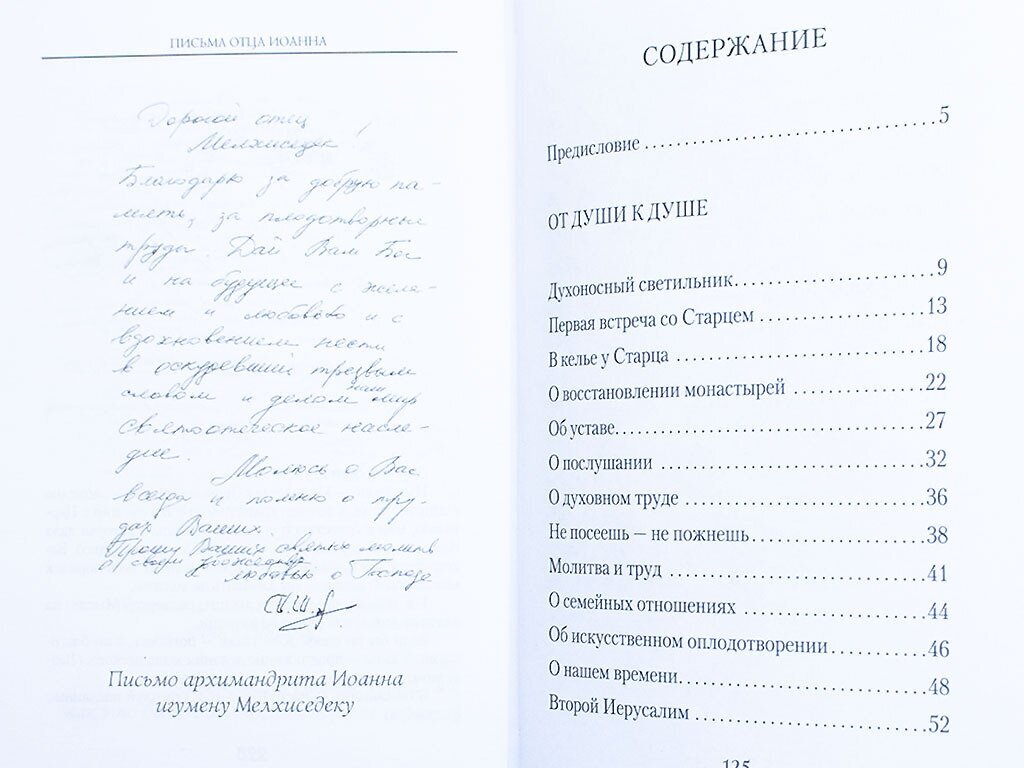 ПИСЬМА ОТЦА ИОАННА
Дорогой отец
Мелхиседек!
Благодарю за добрую па-
мять, за плодотворные
труды. Дай Вам Бог
и на будущее с жела-
нием и любовью и с
вдохновением нести
в оскудевший трезвым
словом и делом наш мир
святоотеческое насле-
дие. Молюсь о Вас
всегда и помню о тру-
дах Ваших.
Прошу Ваших святых молитв
о своем убожестве.
с любовью о Господе
Письмо архимандрита Иоанна
игумену Мелхиседеку
СОДЕРЖАНИЕ
Предисловие ........................................ 5
ОТ ДУШИ К ДУШЕ
Духоносный светильник........................... 9
Первая встреча со Старцем ........................ 13
В келье у Старца .................................. 18
О восстановлении монастырей .................... 22
Об уставе.......................................... 27
О послушании .................................... 32
О духовном труде ................................. 36
Не посеешь — не пожнешь......................... 38
Молитва и труд ................................... 41
О семейных отношениях .......................... 44
Об искусственном оплодотворении ............... 46
О нашем времени.................................. 48
Второй Иерусалим ................................ 52
125